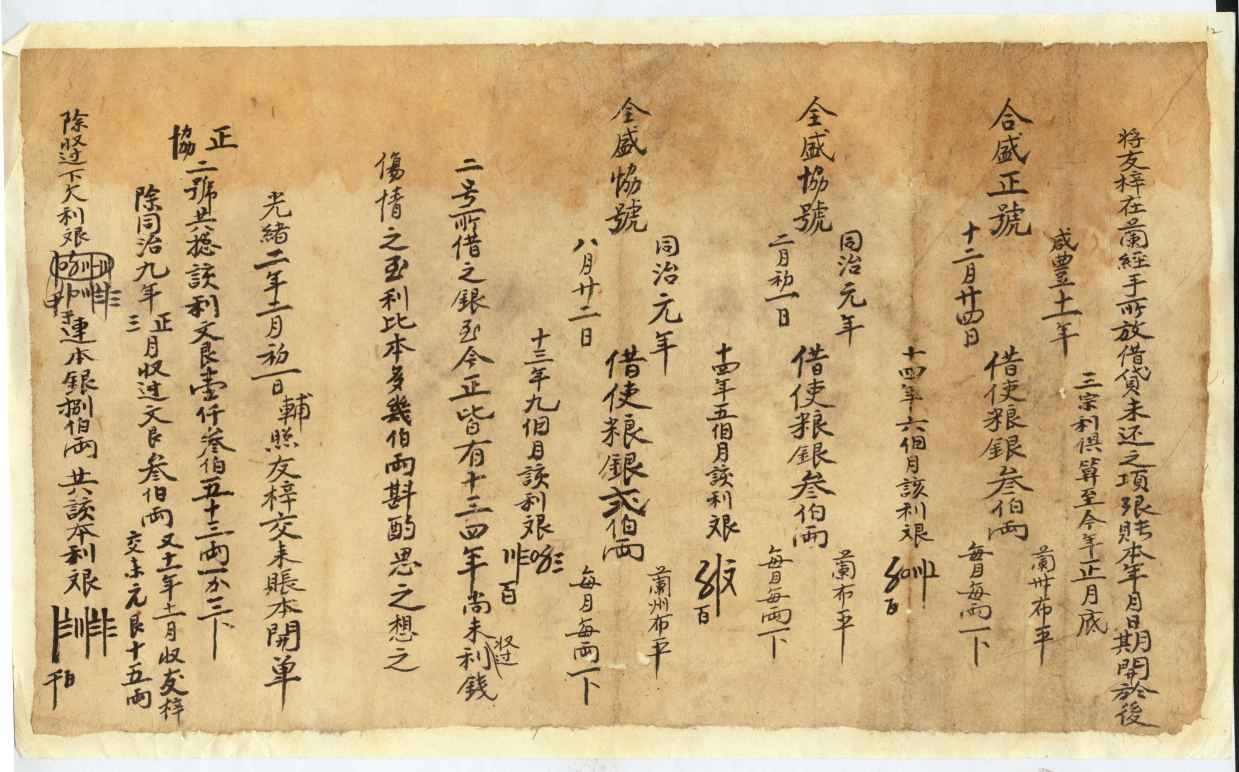 将友梓在蘭經手所放借貸未还之項銀賬本年月日期開於後
三宗利俱算至今年正月底
合盛正號
咸豐十一年
十二月廿四日
借使粮銀叁伯兩
蘭州布平
每月每兩一卜
十四年六個月該利艮
百
全盛協號
同治元年
二月初一日
借使粮銀叁伯兩
蘭布平
每月每兩一卜
十四年五個月該利艰
百
全盛協號
同治元年
八月廿二日
借使粮銀弍伯兩
蘭州布平
每月每兩一卜
十三年九個月該利艰
百
二号所借之銀至今正皆有十三四年尚未收过利錢
傷情之至利比本多幾伯兩斟酌思之想之
光緒二年二月初一日輔照友梓交来賬本開单
正
協
二號共揔該利文艮壹仟叁伯五十三兩一分三卜
除同治九年正三月收过文艮叁伯兩
又十一年十一月收友梓
交来元艮十五兩
除收过下欠利艰
連本銀捌伯兩
共該本利艰
千百